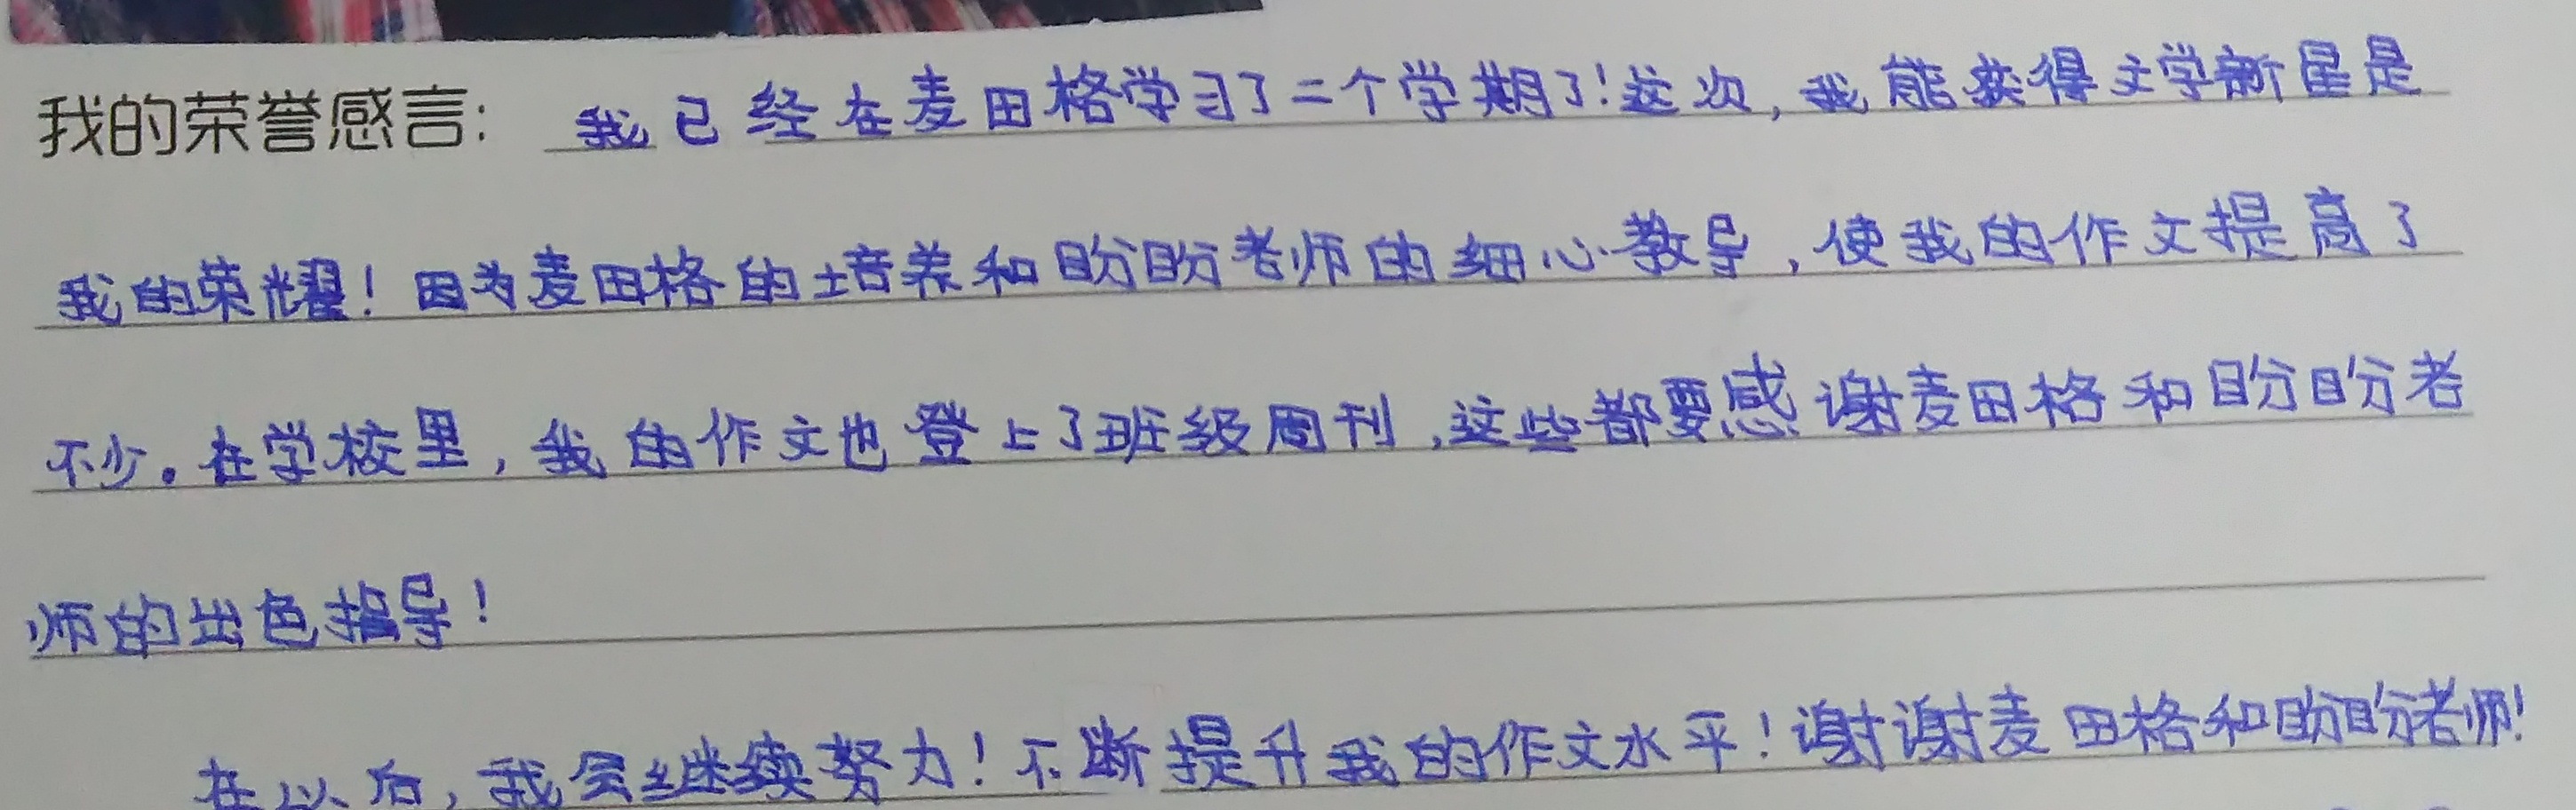 我的荣誉感言: 我已经在麦田格学习了二个学期了!这次,我能获得文学新星是
我的荣耀!因为麦田格的培养和盼盼老师的细心教导,使我的作文提高了
不少。在学校里,我的作文也登上了班级周刊,这些都要感谢麦田格和盼盼老
师的出色指导!
在以后,我会继续努力!不断提升我的作文水平!谢谢麦田格和盼盼老师!